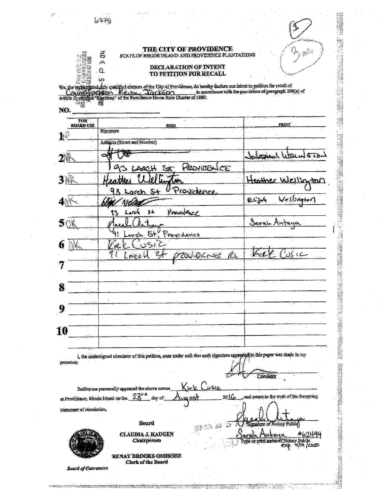 6778
1
THE CITY OF PROVIDENCE
STATE OF RHODE ISLAND AND PROVIDENCE PLANTATIONS
DECLARATION OF INTENT
TO PETITION FOR RECALL
We, the undersigned duly qualified electors of the City of Providence, do hereby declare our intent to petition for recall of
Kevin Jackson in accordance with the provisions of paragraph 209(a) of
of the Providence Home Rule Charter of 1980.
NO.
FOR BOARD USE
SIGN
PRINT
1
Signature
Address (Street and Number)
2
WELLINGTON
93 LARCH ST PROVIDENCE
3
Heather Wellington
Heather Wellington
93 Larch St Providence
4
Wellington
93 Larch St Providence
5 OK
Sarah Antaya
91 Larch St, Providence
6
Kirk Cusic
Kirk Cusic
91 Larch St PROVIDENCE RI
7
8
9
10
I, the undersigned circulator of this petition, state under oath that each signature appended to this paper was made in my
presence.
Circulator
Before me personally appeared the above named Kirk Cusic
at Providence, Rhode Island on the 23rd day of August 2016 and swore to the truth of the foregoing
statement of circulation.
Signature of Notary Public
Sarah Antaya
Type or print name of Notary Public
exp
Board
CLAUDIA J. HAUGEN
Chairperson
RENAY BROOKS OMISORE
Clerk of the Board
Board of Canvassers